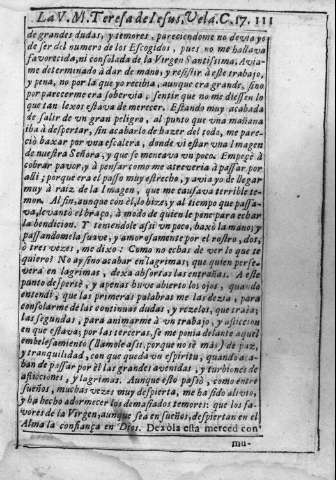 La V. M. Teresa de Iesus, Vela. C. 17. 111
de grandes dudas, y temores, pareciendome no devia yo
de ser del numero de los Escogidos, pues no me hallava
favorecida, ni consolada de la Virgen Santissima. Avia-
me determinado à dar de mano, y resistir à este trabajo,
y pena, no por la que yo recibia, aunque era grande, sino
por parecerme era sobervia, sentir que no me diessen lo
que tan lexos estava de merecer. Estando muy acabada
de salir de un gran peligro, al punto que una mañana
iba à despertar, sin acabarlo de hazer del todo, me pare-
ciò baxar por una escalera, donde vi estar una Imagen
de nuestra Señora, y que se meneava un poco. Empecè à
cobrar pavor, y à pensar como me atreveria à passar por
alli; porque era el passo muy estrecho, y avia yo de llegar
muy à raiz de la Imagen, que me causava terrible te-
mor. Al fin, aunque con èl, lo hize, y al tiempo que passa-
va, levantò el braço, à modo de quien le pone para echar
la bendicion. Y teniendole assi un poco, baxò la mano, y
passandomela suave, y amorosamente por el rostro, dos,
ò tres vezes, me dixo: Como no echas de ver lo que te
quiero? No ay sino acabar en lagrimas, que quien perse-
vera en lagrimas, dexa absortas las entrañas. A este
punto despertè, y apenas huve abierto los ojos, quando
entendì, que las primeras palabras me las dezia, para
consolarme de las continuas dudas, y rezelos, que traia;
las segundas, para animarme à un trabajo, y afliccion
en que estava; por las terceras, se me ponia delante aquel
embelesamiento (llamole assi, porque no sè mas) de paz,
y tranquilidad, con que queda un espiritu, quando aca-
ban de passar por èl las grandes avenidas, y turbiones de
aflicciones, y lagrimas. Aunque esto passò, como entre
sueños, muchas vezes muy despierta, me ha sido alivio,
y ha hecho adormecer los demasiados temores: que los fa-
vores de la Virgen, aunque sea en sueños, despiertan en el
Alma la confiança en Dios. Dexòla esta merced con
mu-